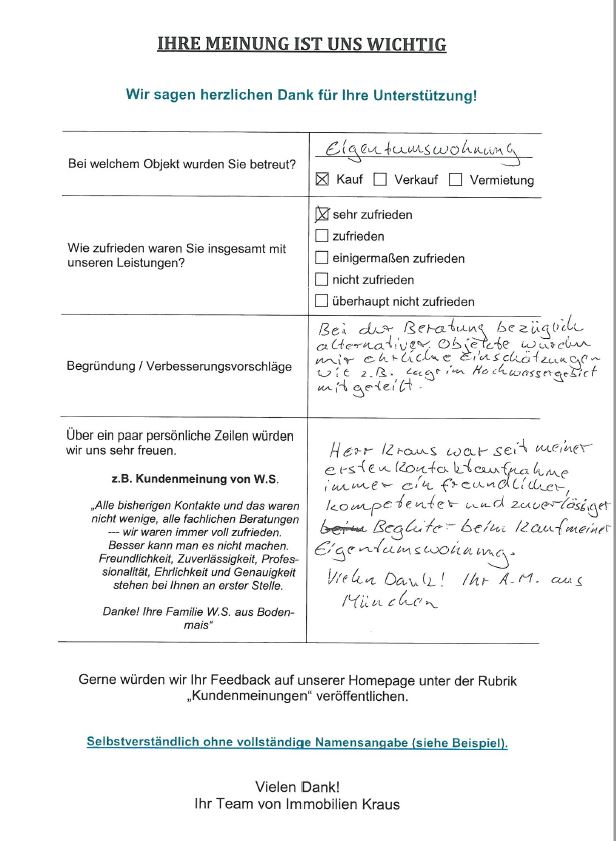 IHRE MEINUNG IST UNS WICHTIG
Wir sagen herzlichen Dank für Ihre Unterstützung!
Bei welchem Objekt wurden Sie betreut?
Eigentumswohnung
☒ Kauf ☐ Verkauf ☐ Vermietung
Wie zufrieden waren Sie insgesamt mit
unseren Leistungen?
☒ sehr zufrieden
☐ zufrieden
☐ einigermaßen zufrieden
☐ nicht zufrieden
☐ überhaupt nicht zufrieden
Begründung / Verbesserungsvorschläge
Bei der Beratung bezüglich
alternativer Objekte wurden
mir ehrliche Einschätzungen
wie z.B. Lage im Hochwassergebiet
mitgeteilt.
Über ein paar persönliche Zeilen würden
wir uns sehr freuen.
z.B. Kundenmeinung von W.S.
„Alle bisherigen Kontakte und das waren
nicht wenige, alle fachlichen Beratungen
--- wir waren immer voll zufrieden.
Besser kann man es nicht machen.
Freundlichkeit, Zuverlässigkeit, Profes-
sionalität, Ehrlichkeit und Genauigkeit
stehen bei Ihnen an erster Stelle.
Danke! Ihre Familie W.S. aus Boden-
mais“
Herr Kraus war seit meiner
ersten Kontaktaufnahme
immer ein freundlicher,
kompetenter und zuverlässiger
beim Begleiter beim Kauf meiner
Eigentumswohnung.
Vielen Dank! Ihr A.M. aus
München
Gerne würden wir Ihr Feedback auf unserer Homepage unter der Rubrik
„Kundenmeinungen“ veröffentlichen.
Selbstverständlich ohne vollständige Namensangabe (siehe Beispiel).
Vielen Dank!
Ihr Team von Immobilien Kraus